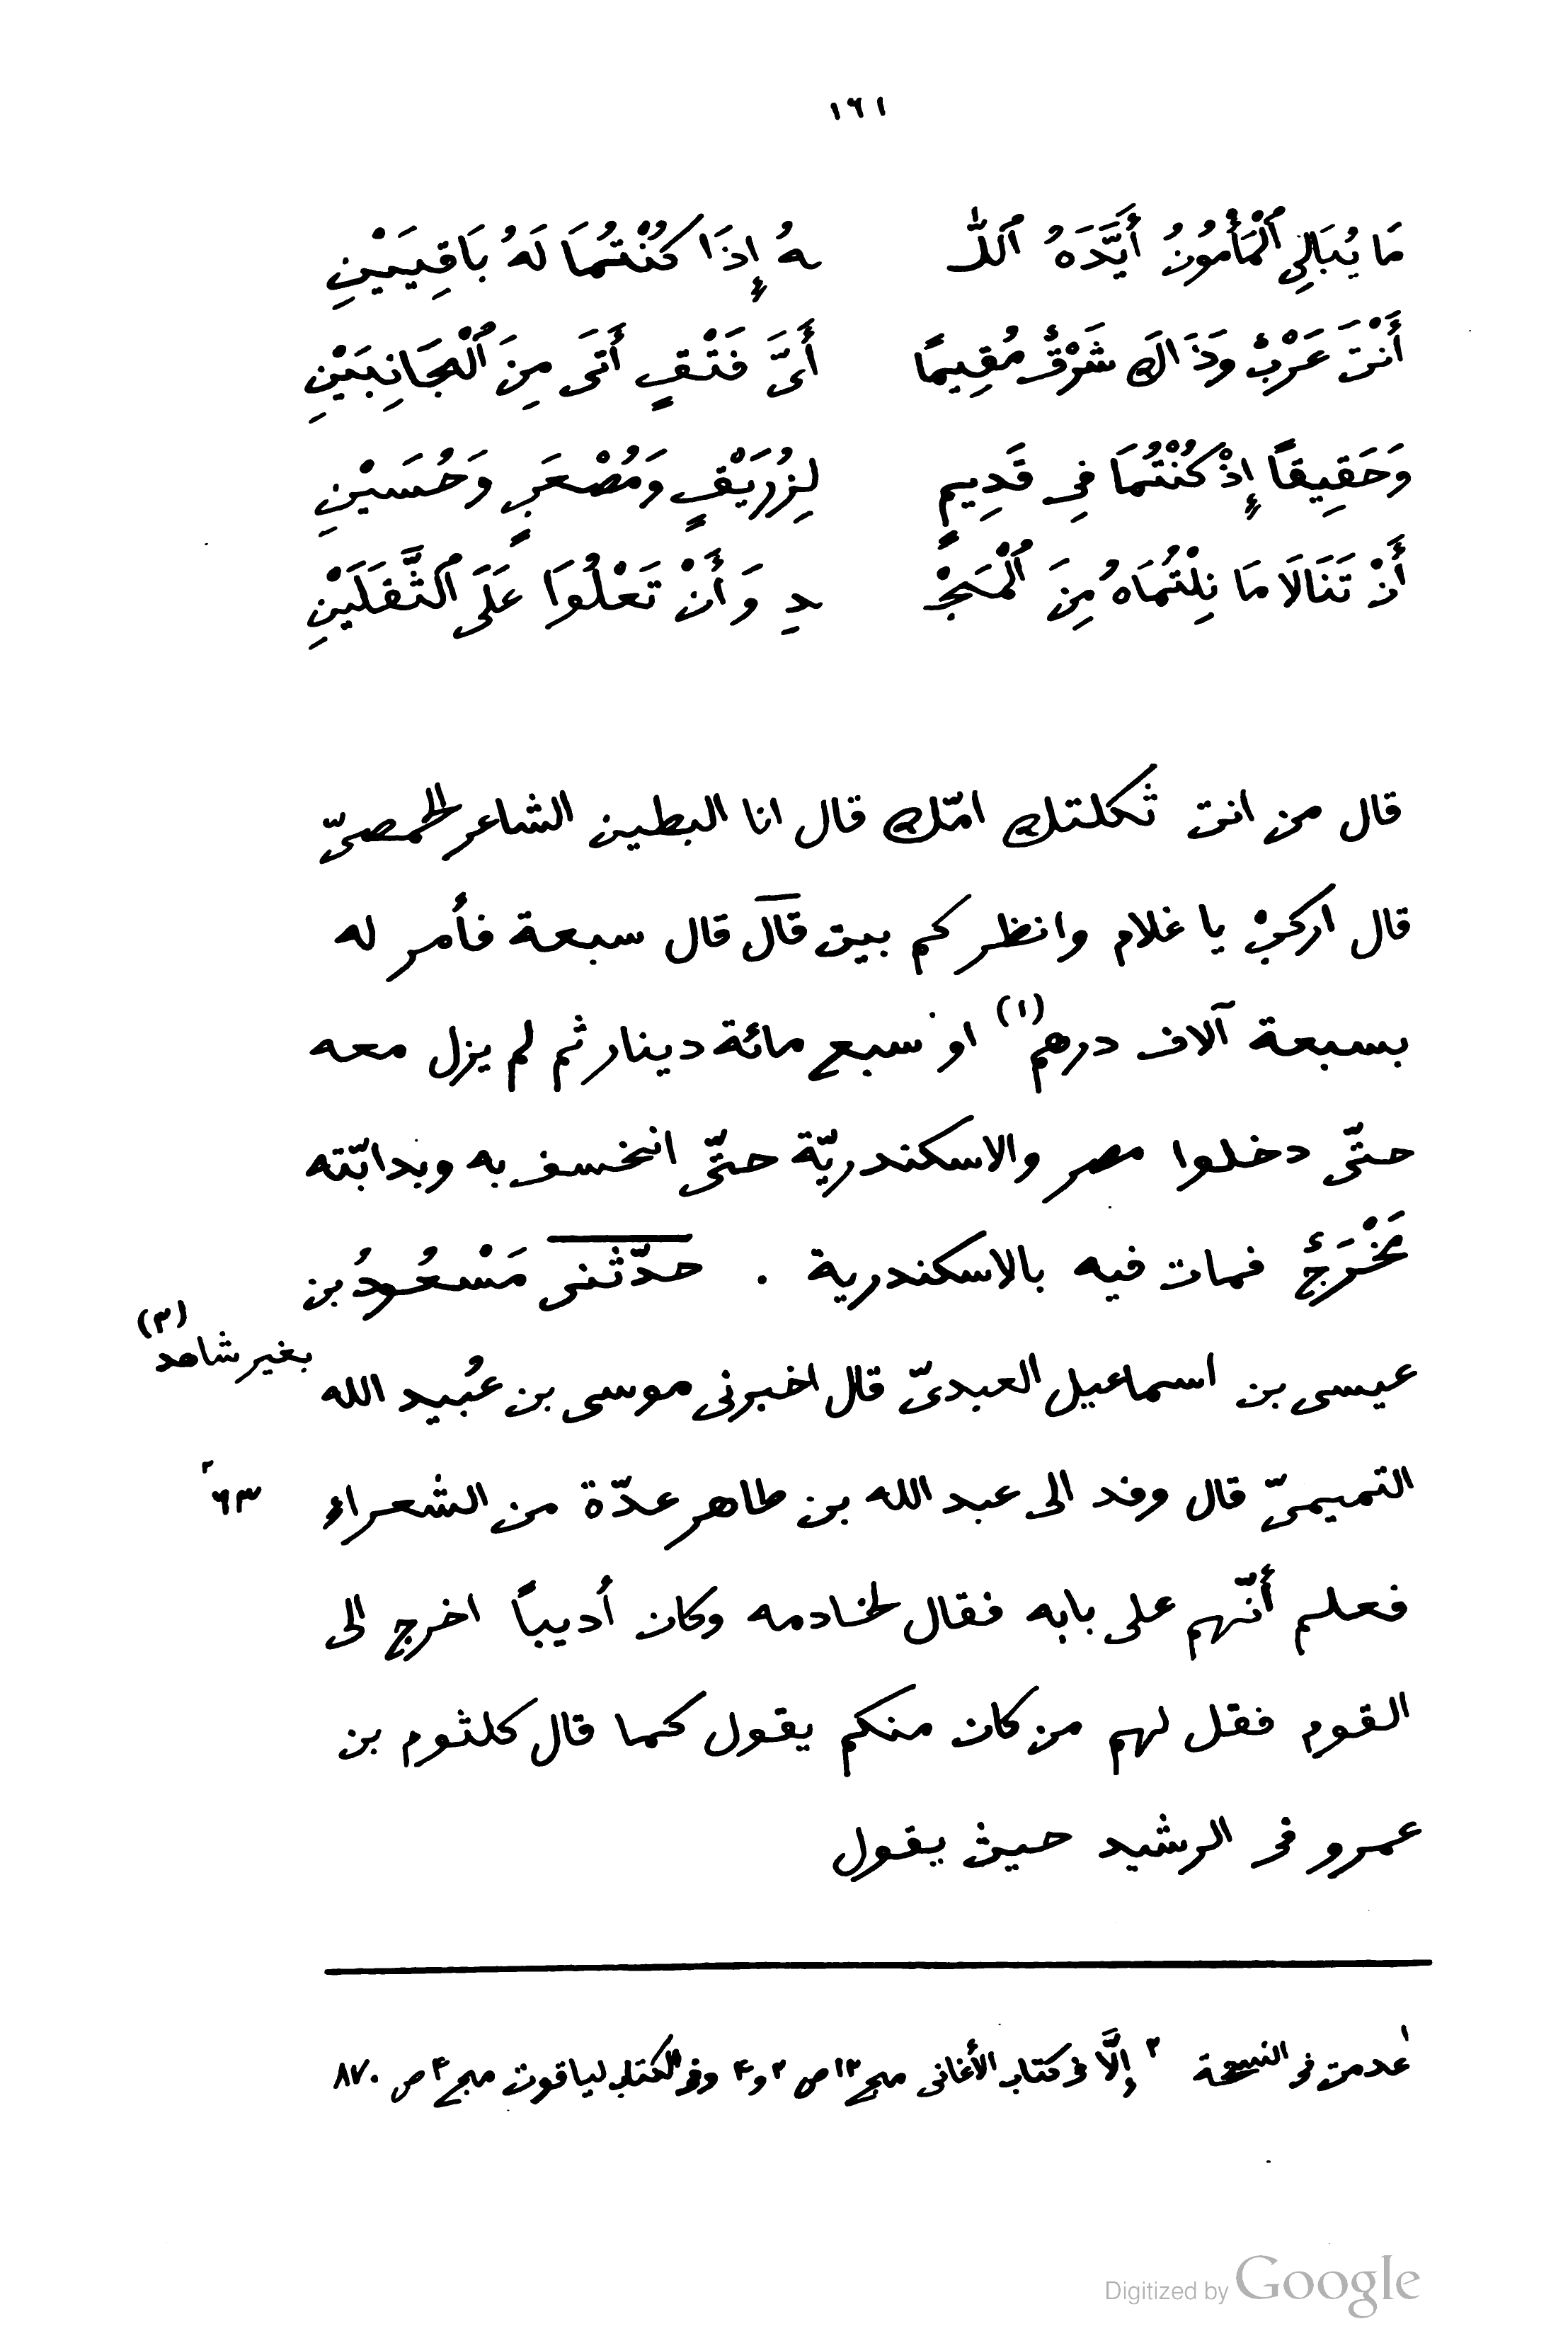 ١٦١
مَا يُبَالِى ٱلْمَأْمُونُ أَيَّدَهُ ٱللّٰ هُ إِذَا كُنْتُمَا لَهُ بَاقِيَيْنِ
أَنْتَ غَرْبٌ وَذَاكَ شَرْقٌ مُقِيمًا أَىَّ فَتْقٍ أَتَى مِنَ ٱلْجَانِبَيْنِ
وَحَقِيقًا إِذْ كُنْتُمَا فِى قَدِيمٍ لِزُرَيْقٍ وَمُصْعَبٍ وَحُسَيْنِ
أَنْ تَنَالَا مَا نِلْتُمَاهُ مِنَ ٱلْمَجْ دِ وَأَنْ تَعْلُوَا عَلَى ٱلثَّقَلَيْنِ
قال من انت ثكلتك امّك قال انا البطين الشاعر الحمصىّ
قال اركبْ يا غلام وانظر كم بيت قَالَ قال سبعة فأمر له
بسبعة آلاف درهم (١) او سبع مائة دينار ثم لم يزل معه
حتّى دخلوا مصر والاسكندريّة حتّى انخسف به وبدابّته
مَخْرَجٌ فمات فيه بالاسكندرية . حدّثنى مَسْعُودُ بن
عيسى بن اسماعيل العبدىّ قال اخبرنى موسى بن عُبيد الله
بغير شاهد (٢)
التميمىّ قال وفد الى عبد الله بن طاهر عدّة من الشعراء
٦٣
فعلم أنّهم على بابه فقال لخادمه وكان أديبًا اخرج الى
القوم فقل لهم من كان منكم يقول كما قال كلثوم بن
عمرو فى الرشيد حيث يقول
١ عدمت فى النسخة ٢ إلَّا فى كتاب الأغانى مج ١٢ ص ٣ و ٤ وفى الكتاب لياقوت مج ٤ ص ٨٧٠
Digitized by Google